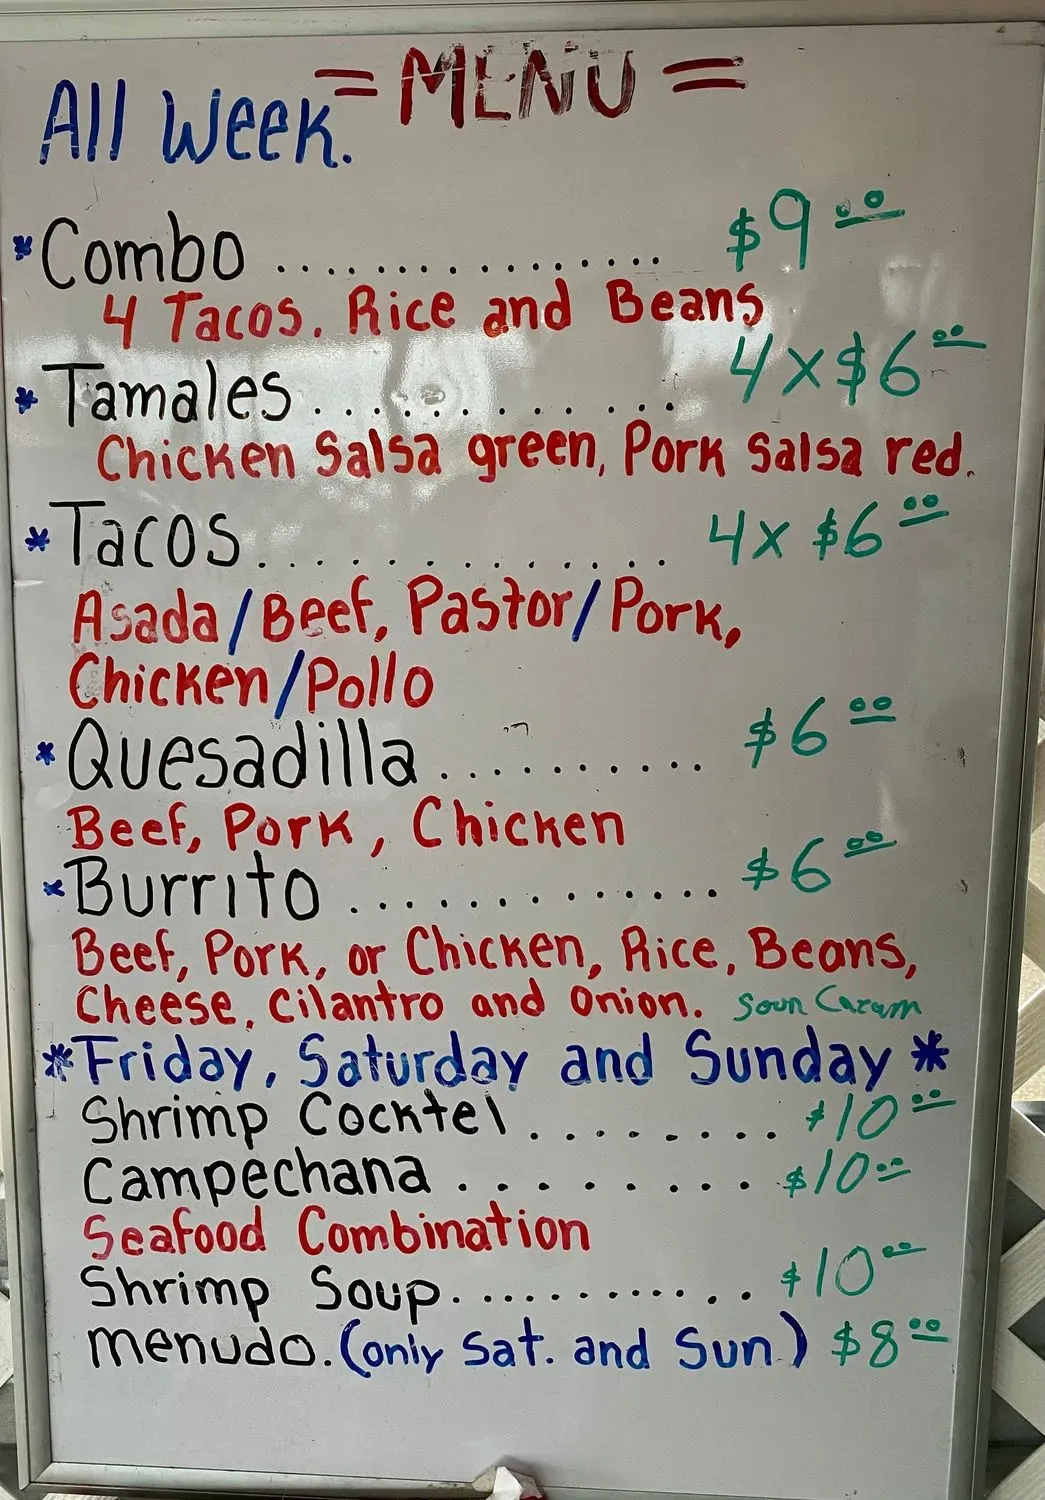 = MENU =
All Week.
*Combo ................ $9.00
4 Tacos. Rice and Beans
*Tamales.............. 4x$6.00
Chicken Salsa green, Pork Salsa red.
*Tacos............... 4x $6.00
Asada/Beef, Pastor/Pork,
Chicken/Pollo
*Quesadilla .......... $6.00
Beef, Pork, Chicken
*Burrito ............. $6.00
Beef, Pork, or Chicken, Rice, Beans,
Cheese, Cilantro and Onion. Soun Caram
*Friday, Saturday and Sunday*
Shrimp Cocktel ........ $10.00
Campechana ......... $10.00
Seafood Combination
Shrimp Soup............. $10.00
menudo. (only Sat. and Sun) $8.00